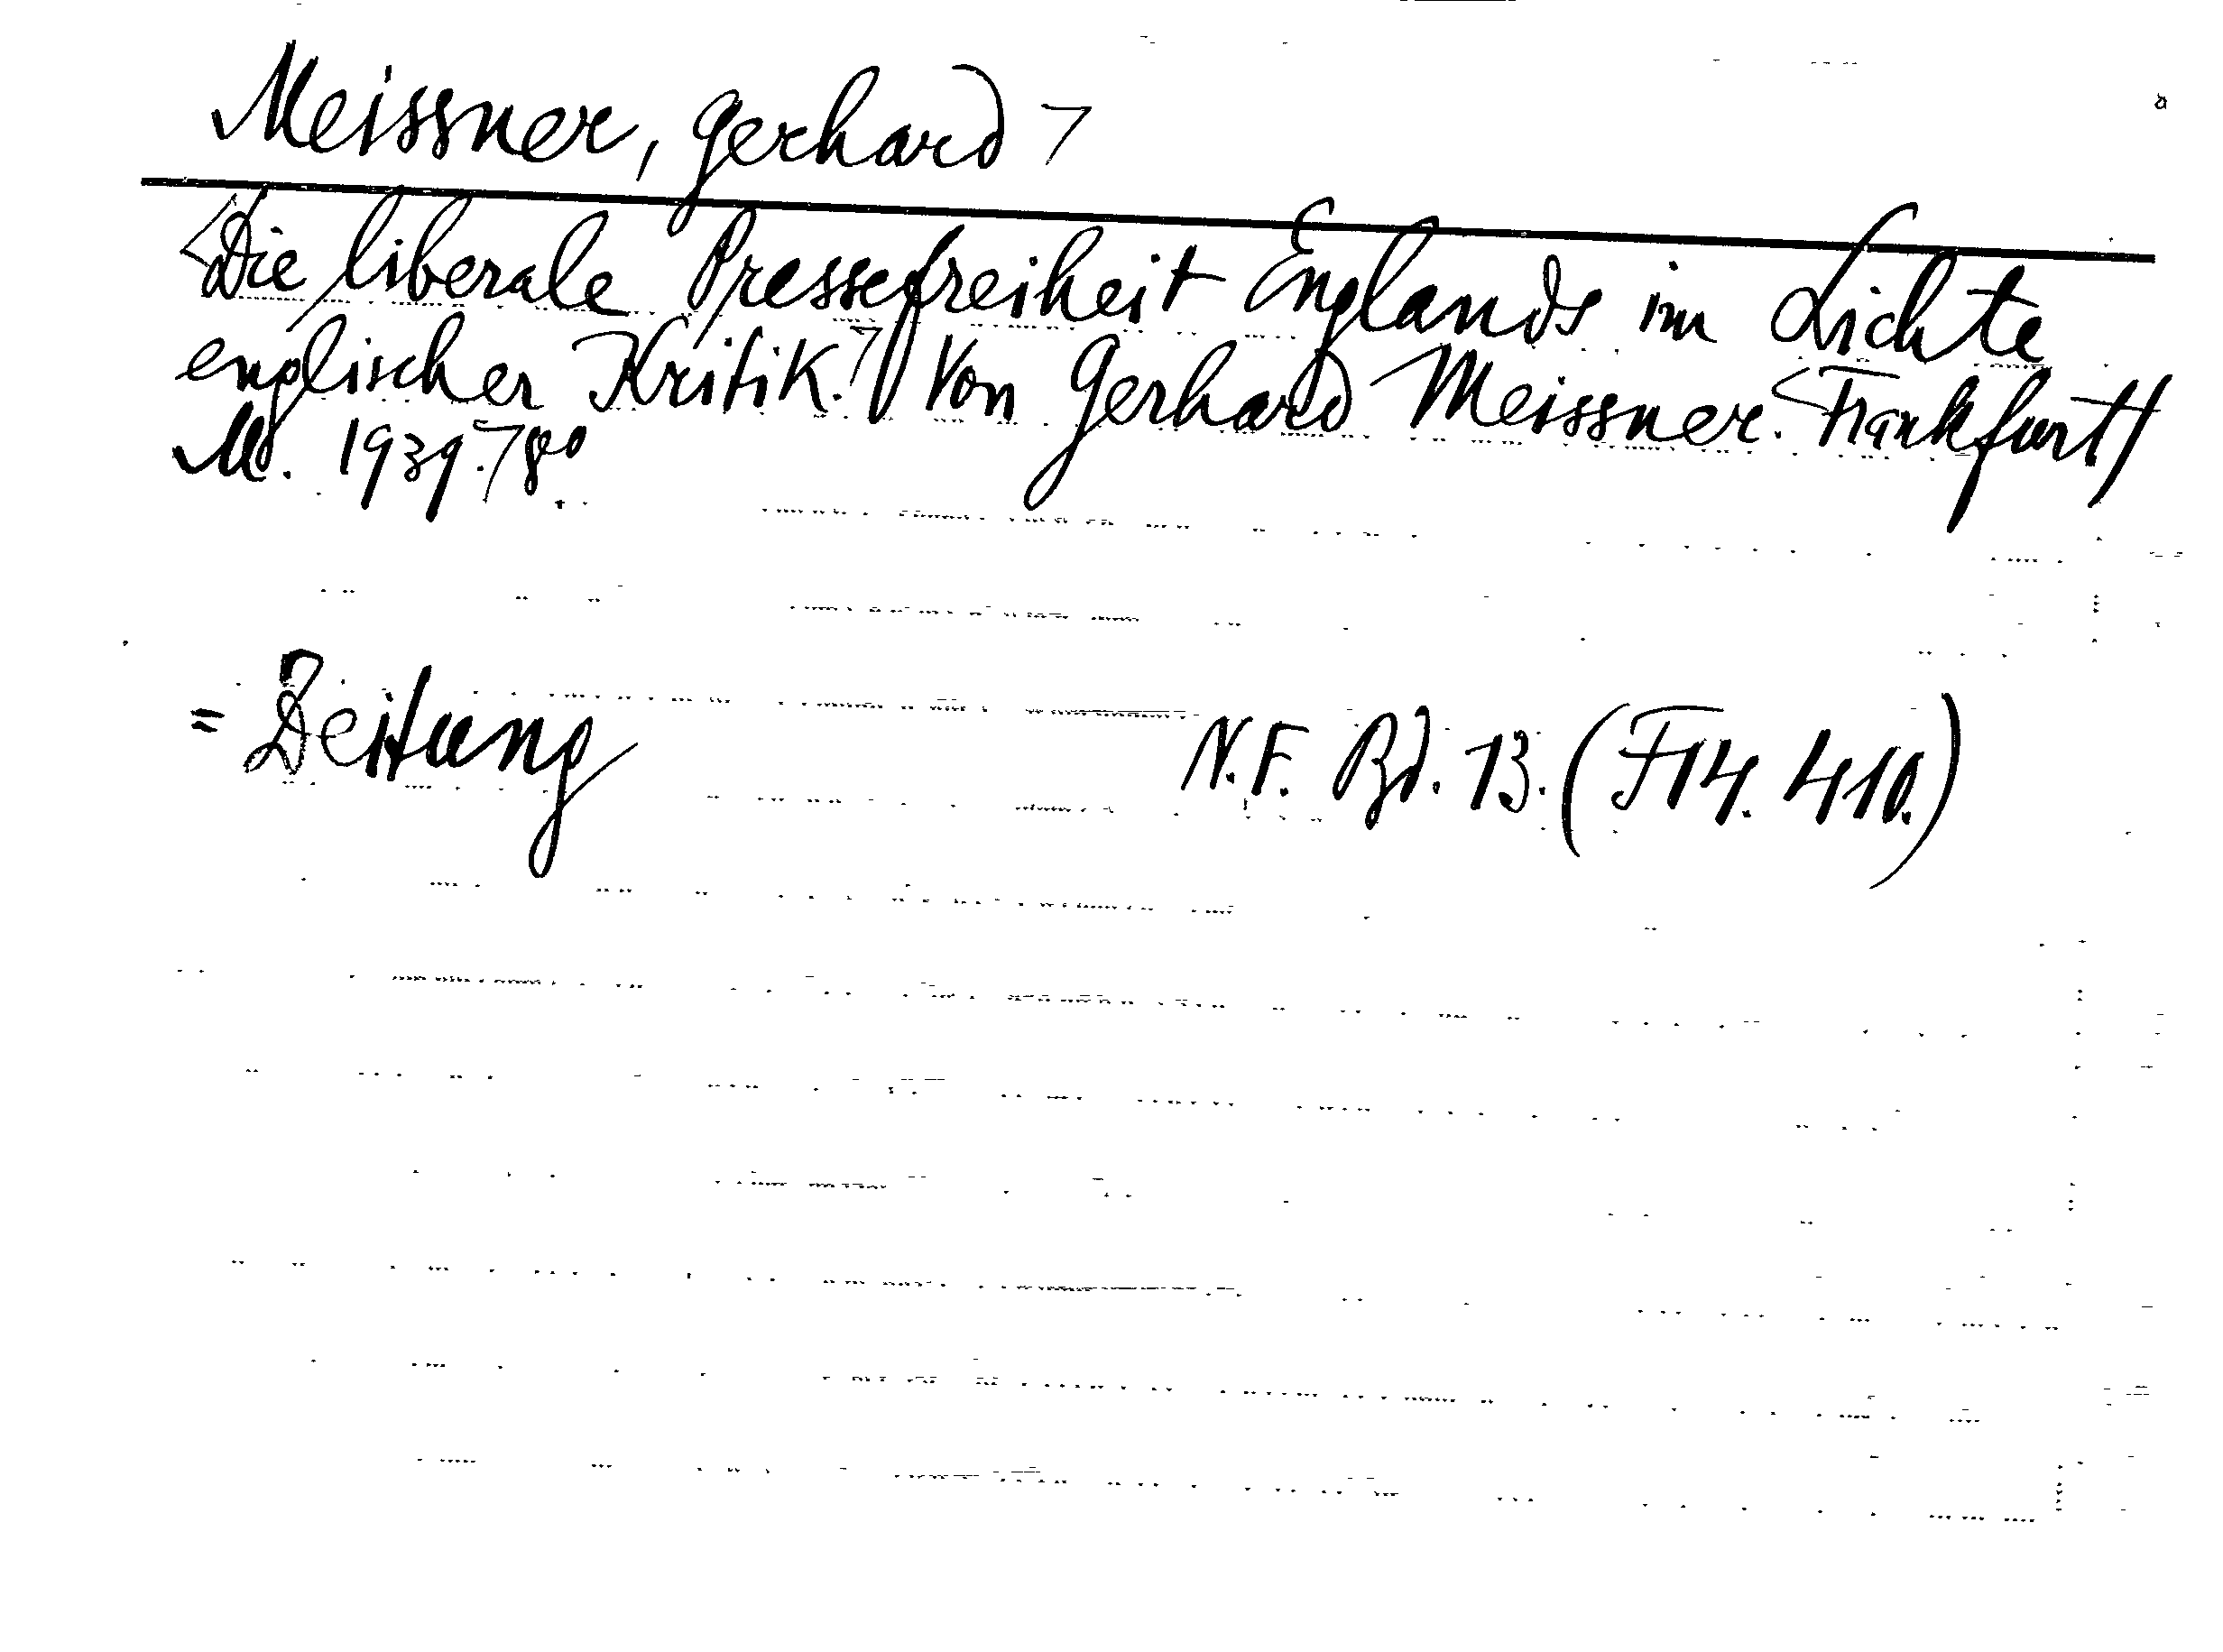 Meissner, Gerhard>
<Die liberale Pressefreiheit Englands im Lichte
englischer Kritik.> Von Gerhard Meissner. <Frankfurt/
M. 1939.> 8°.
= Zeitung N.F. Bd. 13. (F14. 410.)